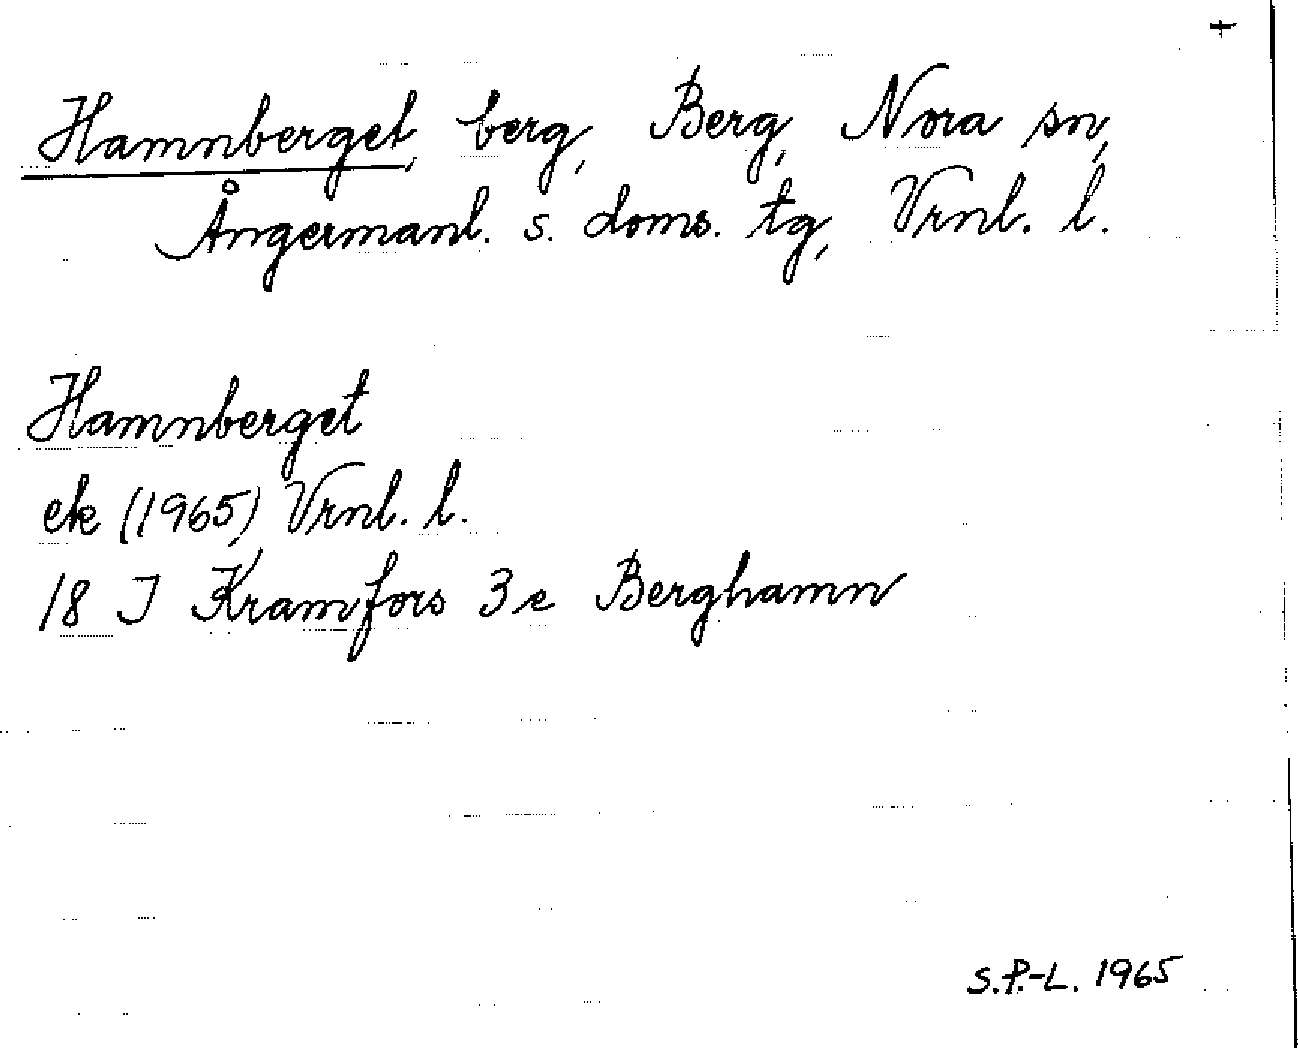 +
Hamnberget, berg, Berg, Nora sn,
Ångermanl. s. doms. tg, Vrnl. l.
Hamnberget
ek (1965) Vrnl. l.
18 J Kramfors 3 e Berghamn
S.P.-L. 1965